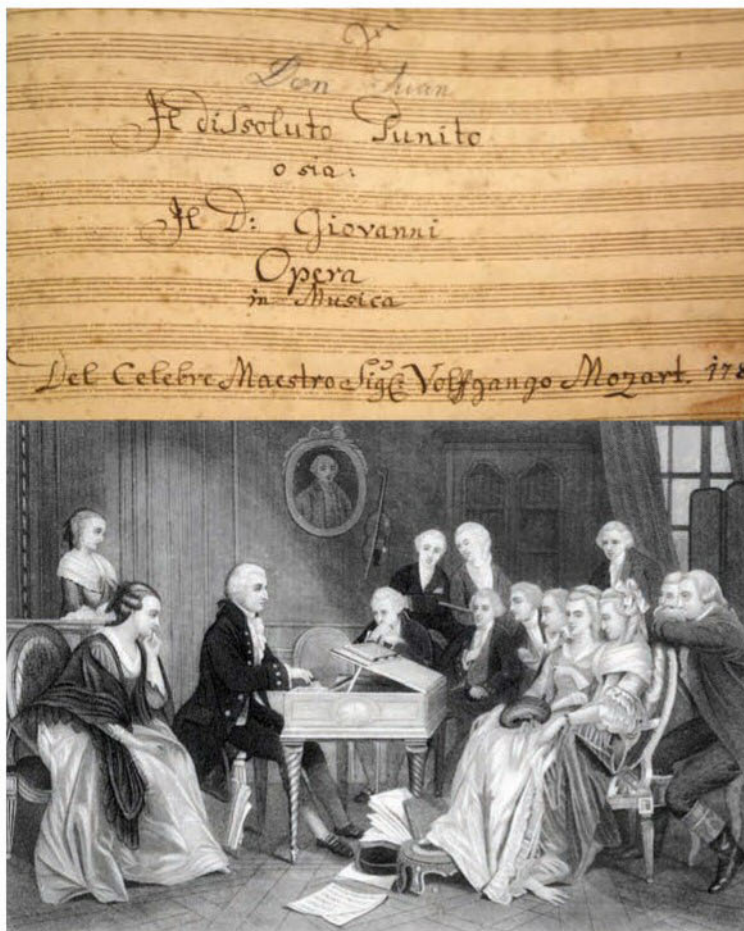 Don Juan
Il dissoluto Punito
o sia:
Il D: Giovanni
Opera
in Musica
Del Celebre Maestro Sig: Volfgango Mozart. 178